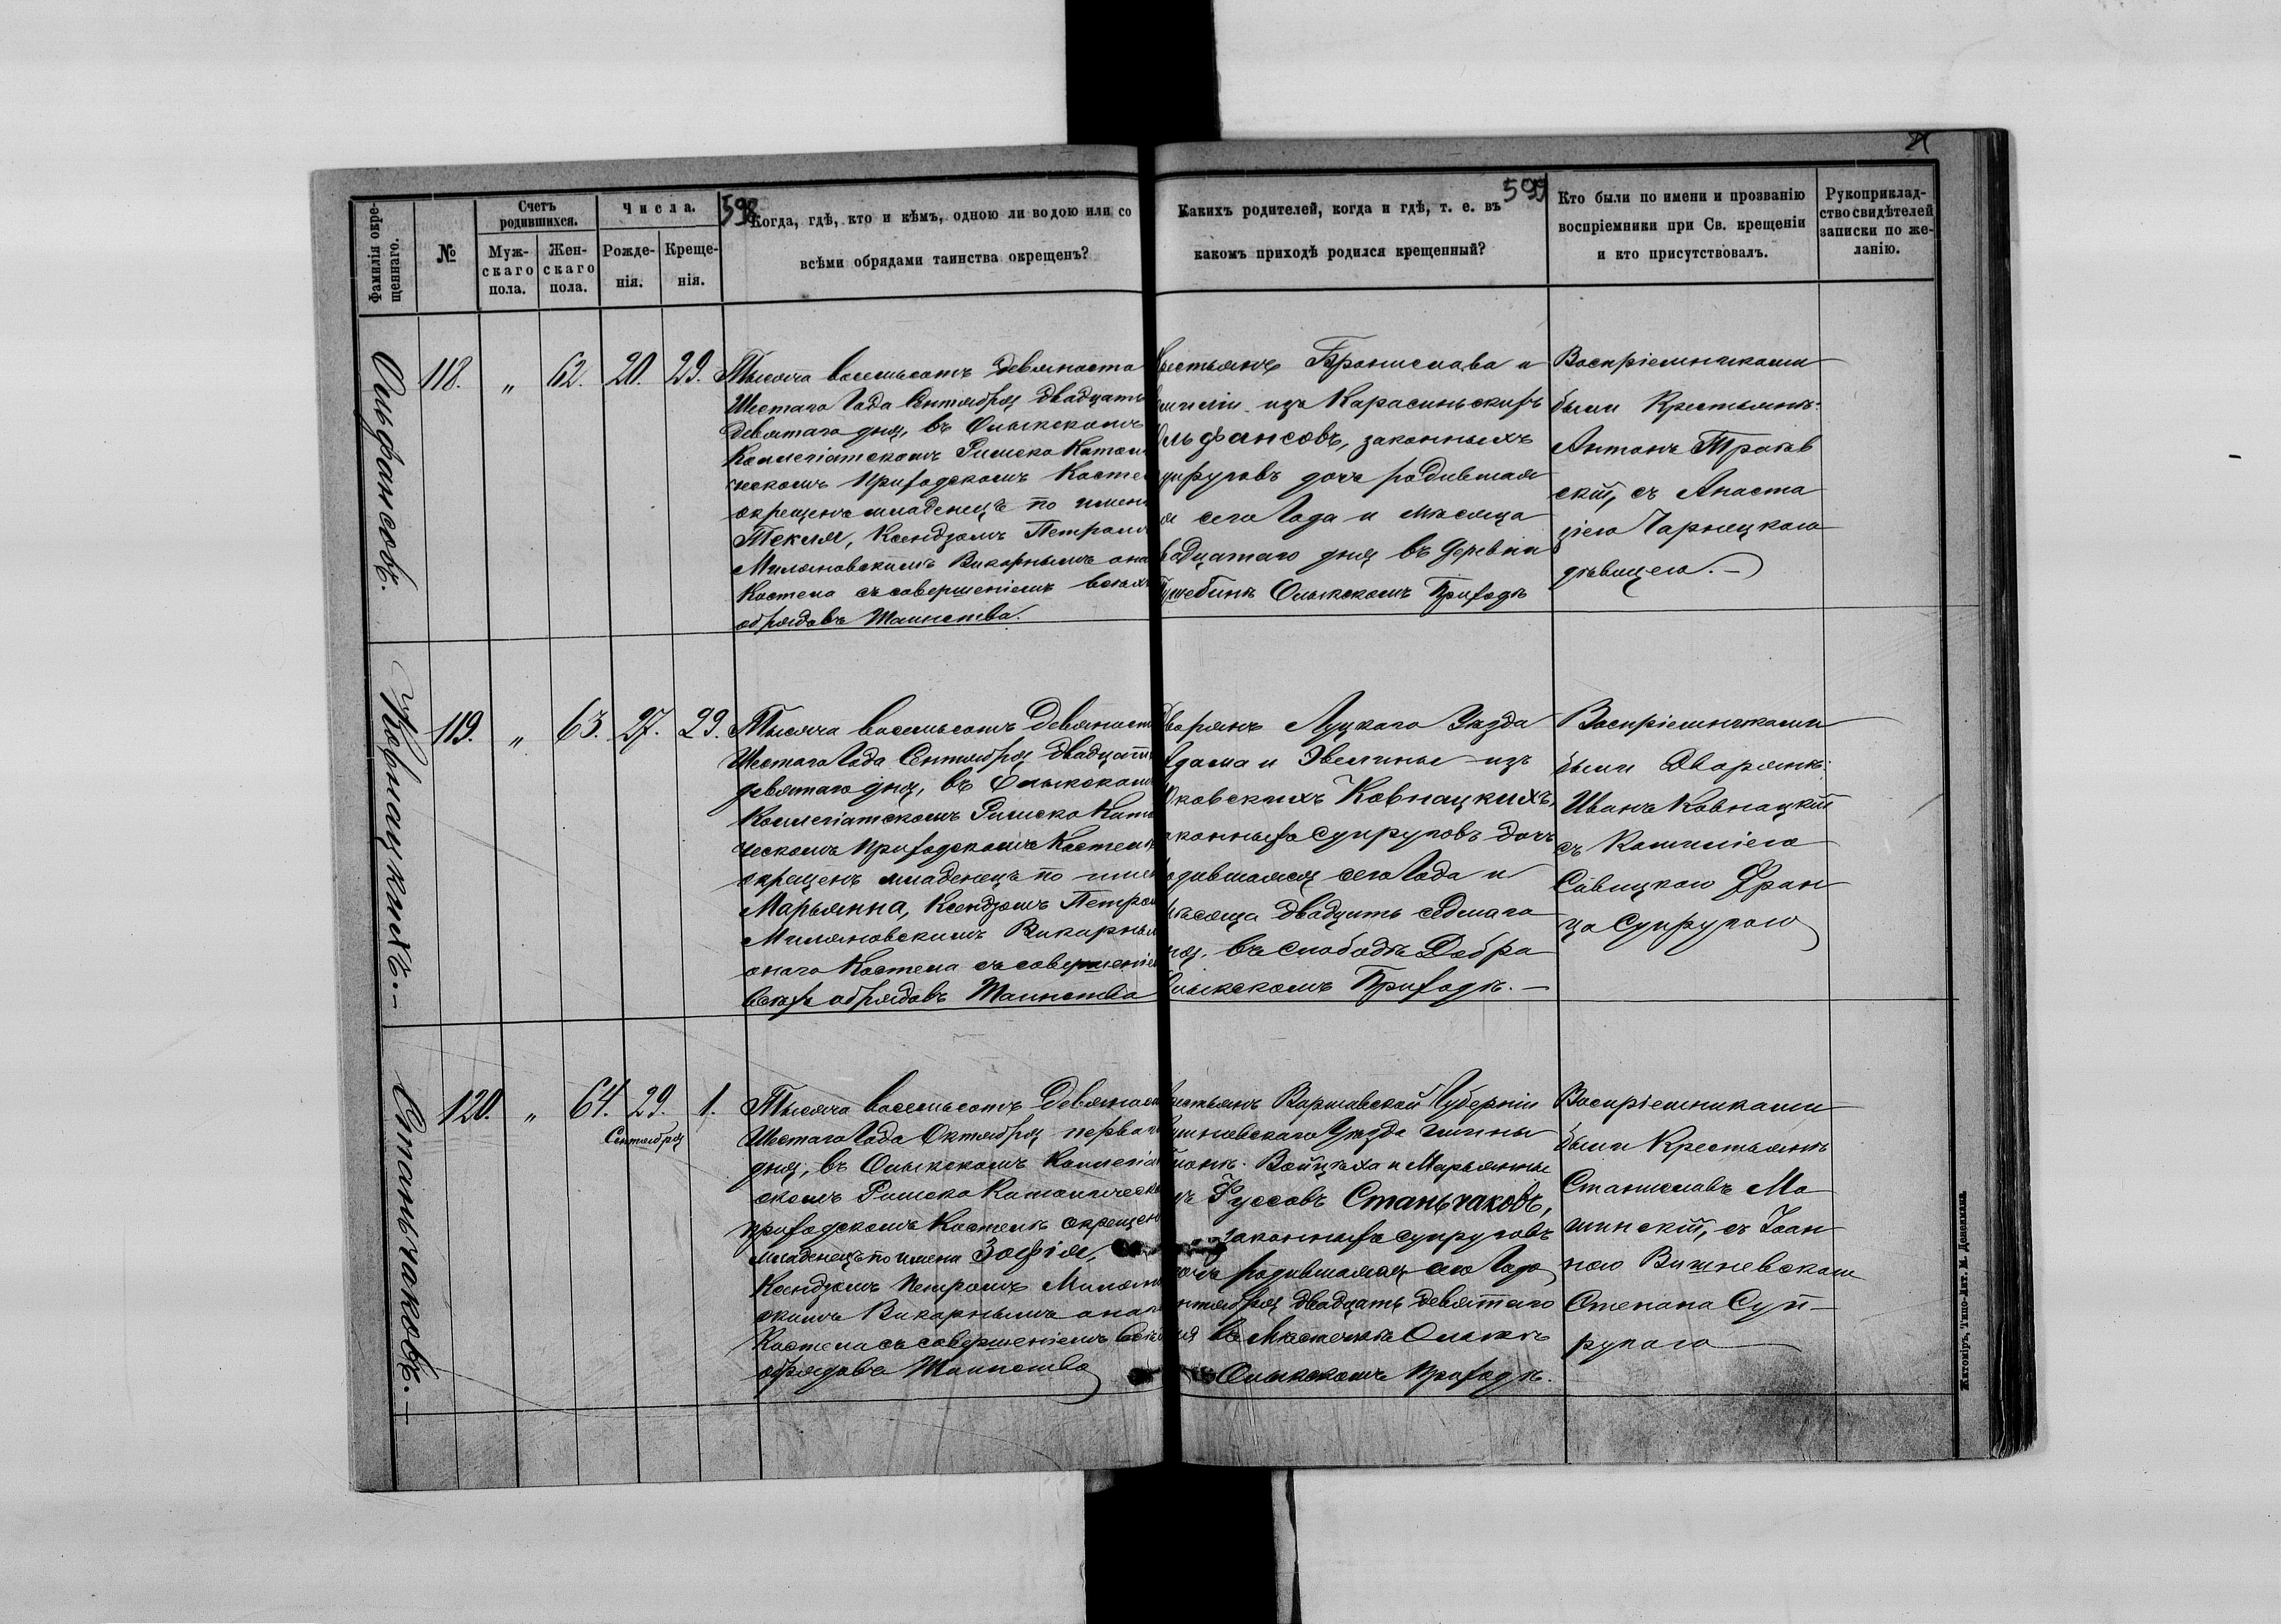 598
599
Фамилія окре-
щеннаго.
№
Счетъ
родившихся.
Муж-
скаго
пола.
Жен-
скаго
пола.
Числа.
Рожде-
нія.
Креще-
нія.
Когда, гдѣ, кто и кѣмъ, одною ли водою или со
всѣми обрядами таинства окрещенъ?
Какихъ родителей, когда и гдѣ, т. е. въ
какомъ приходѣ родился крещенный?
Кто были по имени и прозванію
воспріемники при Св. крещеніи
и кто присутствовалъ.
Рукоприклад-
ство свидѣтелей
записки по же-
ланію.
Ольфансовъ.
118. „ 62. 20. 29.
Тысяча восемьсотъ девяноста
Шестаго Года Сентября двадцать
девятаго дня, въ Олыкскомъ
Коллегіатскомъ Римско Катол
ческомъ приходскомъ Косте
окрещенъ младенецъ по имен
Текля, Ксендзомъ Петромъ
Миляновскимъ Викарнымъ она
Костела съ совершеніемъ всѣхъ
обрядовъ Таинства.
естьянъ Бронислава и
миліи изъ Карасинскихъ
льфансовъ, законныхъ
упруговъ дочь родившая
я сего Года и мѣсяца
вадцатаго дня въ деревни
Олыкскомъ Приходѣ
Воспріемниками
были Крестьянъ:
Антонъ
скій, съ Анаста
зіею Чарнецкою
дѣвицею. —
Ковнацкихъ. —
119. „ 63. 27. 29.
Тысяча восемьсотъ девяност
Шестаго Года Сентября двадцать
девятаго дня, въ Олыкском
Коллегіатскомъ Римско Като
ческомъ приходскомъ Костелѣ
окрещенъ младенецъ по имен
Марьянна, Ксендзомъ Петро
Миляновскимъ Викарным
онаго Костела съ совершеніе
всѣхъ обрядовъ Таинства
ворянъ Луцкаго Уѣзда
Адама и Эвелины изъ
ковскихъ Ковнацкихъ,
аконныхъ супруговъ дочь
одившаяся сего Года и
мѣсяца двадцать седмаго
ня, въ слободѣ Добра
лыкскомъ Приходѣ. —
Воспріемниками
были Дворянъ:
Иванъ Ковнацкій
съ Камиліею
Савицкою Фран
ца Супругою
Станьчаковъ. —
120. „ 64. 29. 1.
Сентября
Тысяча восемьсотъ девянос
Шестаго Года Октября перваго
дня, въ Олыкскомъ Коллегіат
скомъ Римско Католическо
приходскомъ Костелѣ окрещен
младенецъ по имени Зофія,
Ксендзомъ Петромъ Милянов
скимъ Викарнымъ онаго
Костела съ совершеніемъ всѣх
обрядовъ Таинства
естьянъ Варшавской Губерніи
Уѣзда гмины
Войцѣха и Марьянны
Фуссовъ Станьчаковъ,
законныхъ супруговъ
очь родившаяся сего Года
нтября двадцать девятаго
ня въ Мѣстечкѣ Олыкѣ
Олыкскомъ приходѣ.
Воспріемниками
были Крестьянъ
Станиславъ Ма
шинскій, съ Іоан
ною Вишневскою
Степана Суп-
ругаю
Житоміръ, Типо-Лит. М. Дененмана